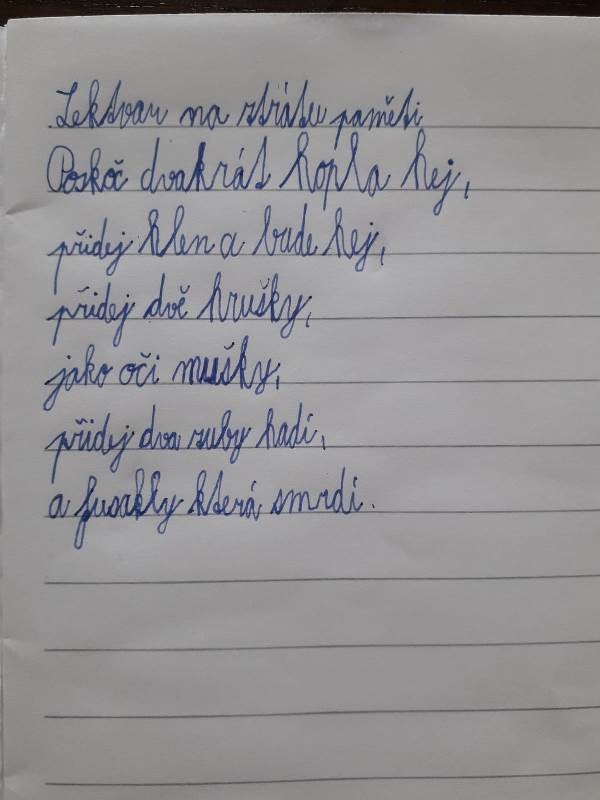 Lektvar na ztrátu paměti
Poskoč dvakrát hopla hej,
přidej klen a bude hej,
přidej dvě hrušky,
jako oči mušky,
přidej dva zuby hadí,
a fusakly která smrdí.